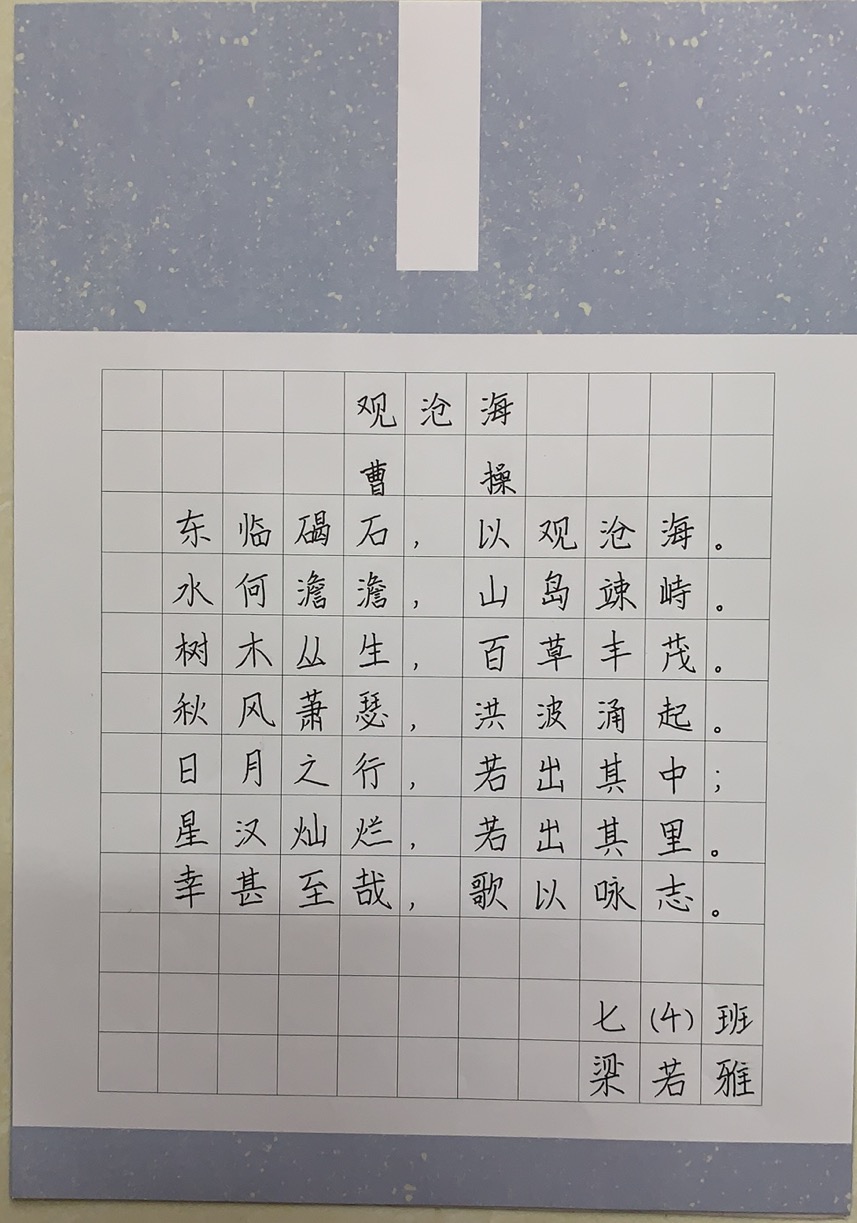 观沧海
曹操
东临碣石，以观沧海。
水何澹澹，山岛竦峙。
树木丛生，百草丰茂。
秋风萧瑟，洪波涌起。
日月之行，若出其中；
星汉灿烂，若出其里。
幸甚至哉，歌以咏志。
七(4)班
梁若雅